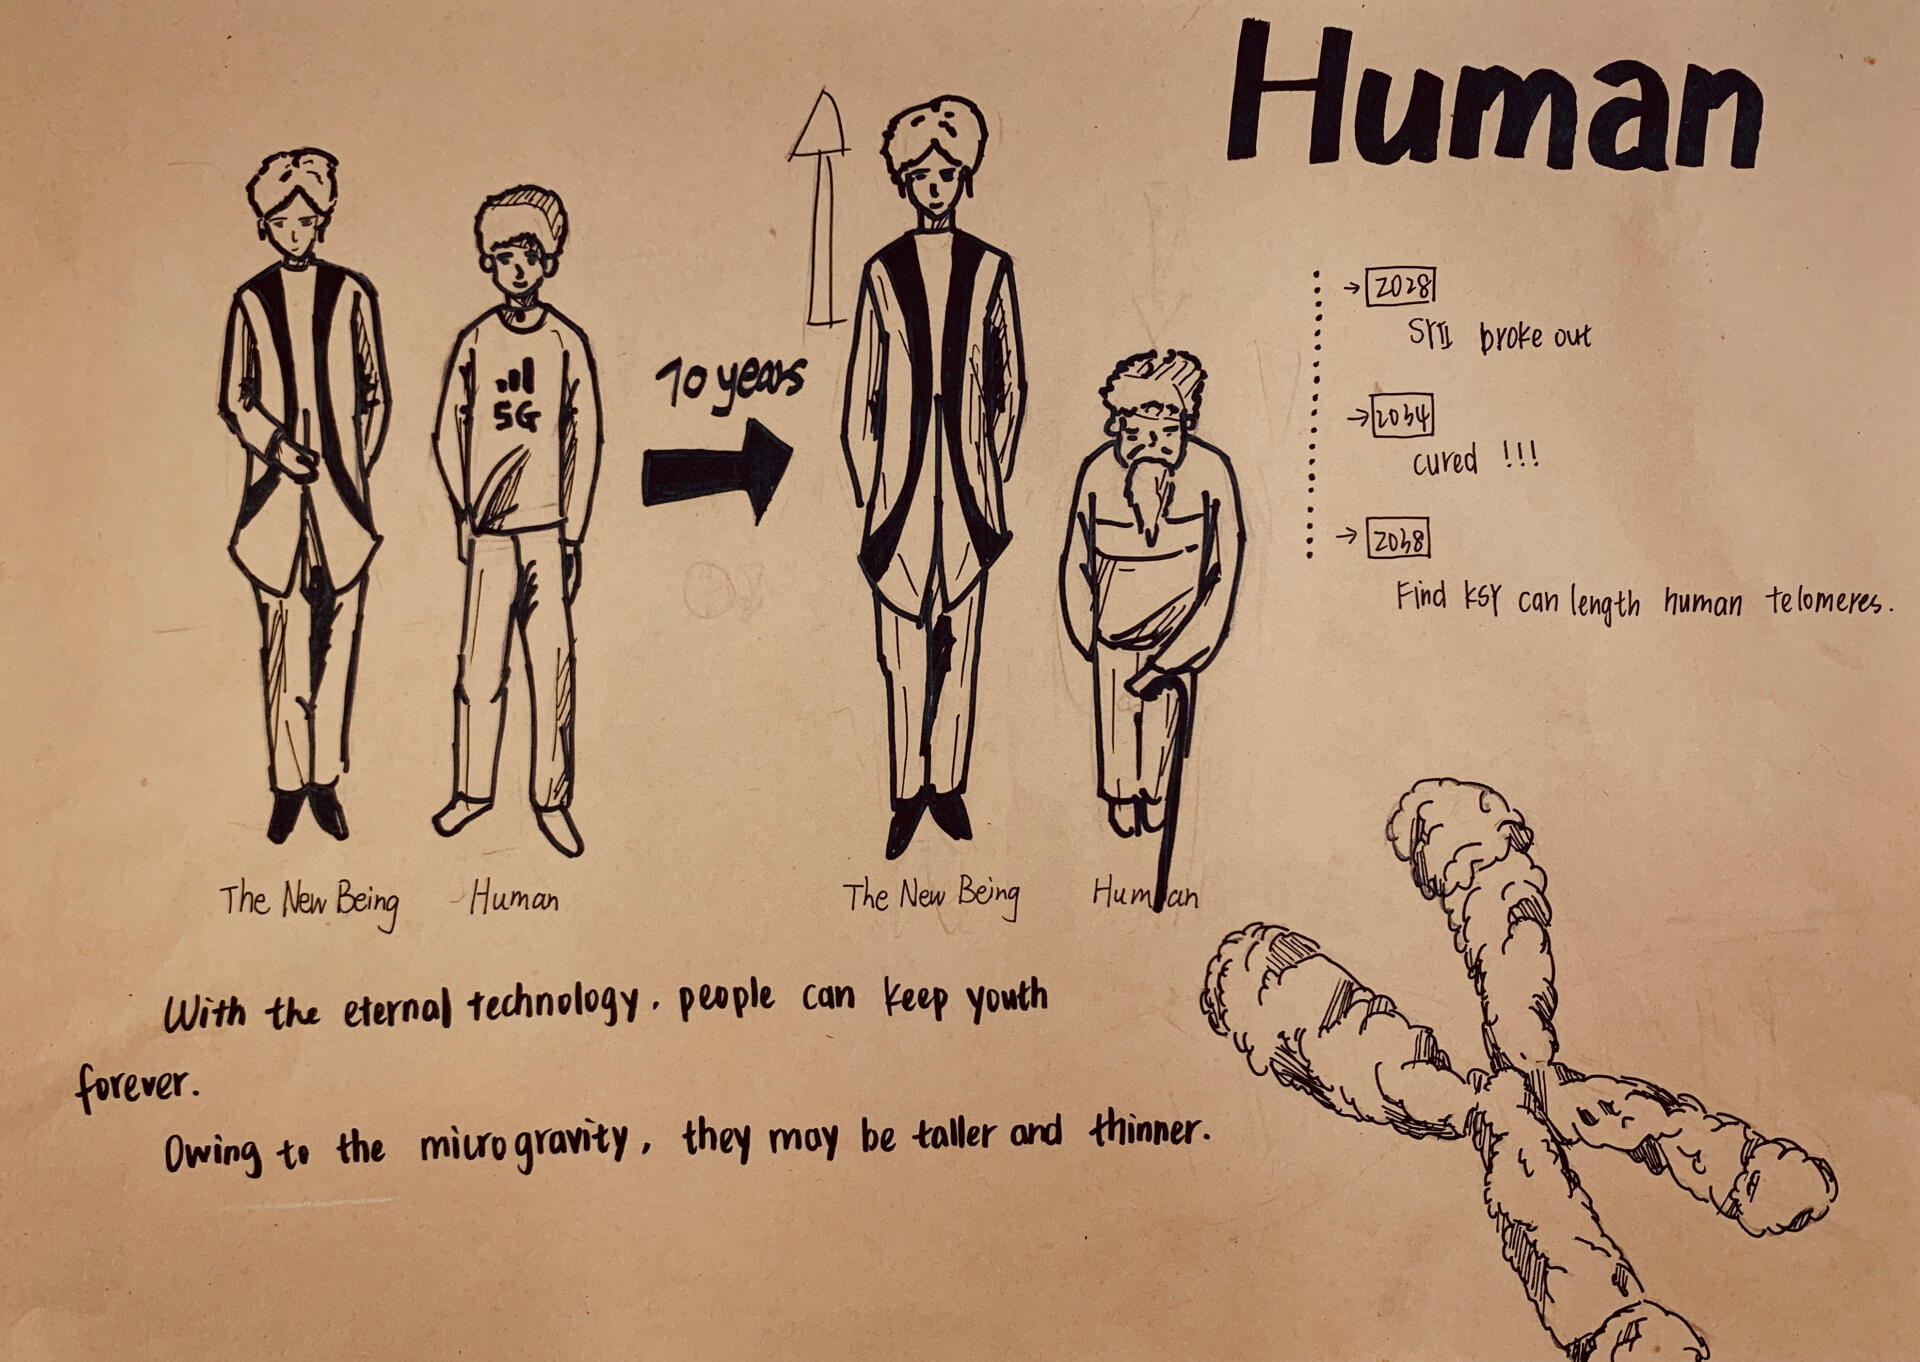 Human
5G
10 years
→ 2028
SYII broke out
→ 2034
cured !!!
→ 2038
Find KSY can length human telomeres.
The New Being
Human
The New Being
Human
With the eternal technology, people can keep youth
forever.
Owing to the microgravity, they may be taller and thinner.